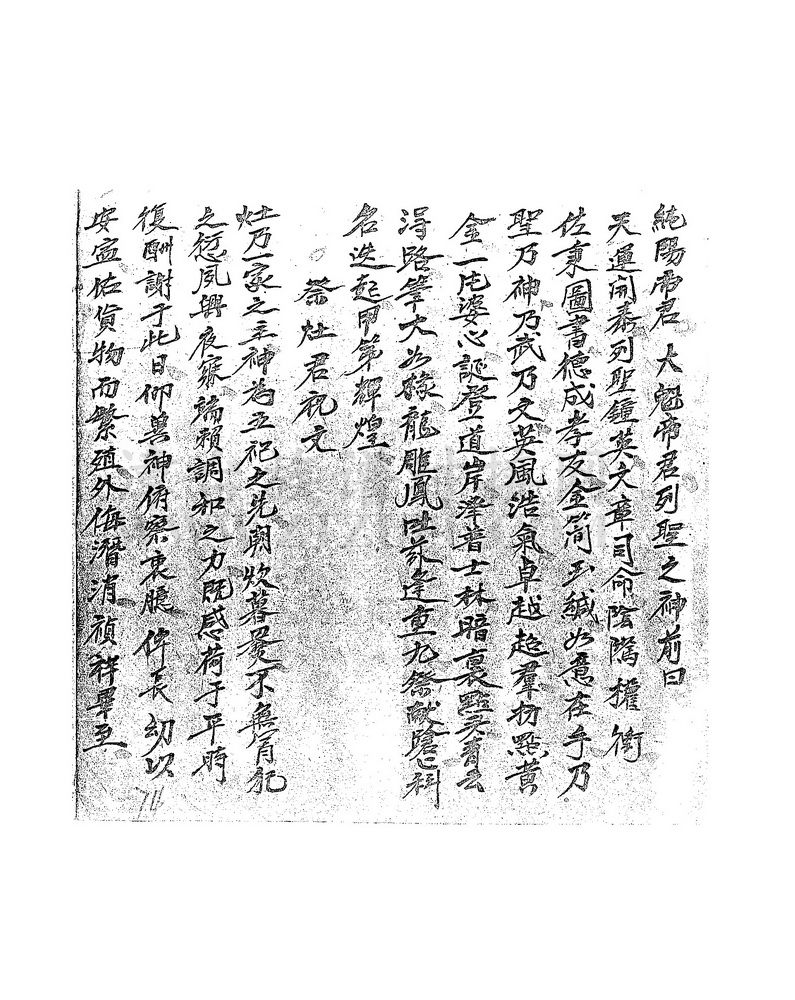 純陽帝君大魁帝君列聖之神前曰
天運開泰列聖鍾英文章司命陰隲權衡
佐秉圖書德成孝友金簡玉緘如意在手乃
聖乃神乃武乃文英風浩氣卓越超羣扮點黄
金一片婆心誕登道岸澤普士林暗裏點头青云
得路筆大如椽龍雕鳳吐茲逢重九祭獻蹌蹌科
名迭起甲第輝煌
祭灶君祝文
灶乃一家之主神為五祀之先朝炊暮爨不無冒犯
之愆夙興夜寐端賴調和之力既感荷于平時
復酬謝于此日仰兾神俯察衷腸俾長幼以
安寍佑貨物而繁殖外侮潛消禎祥畢至